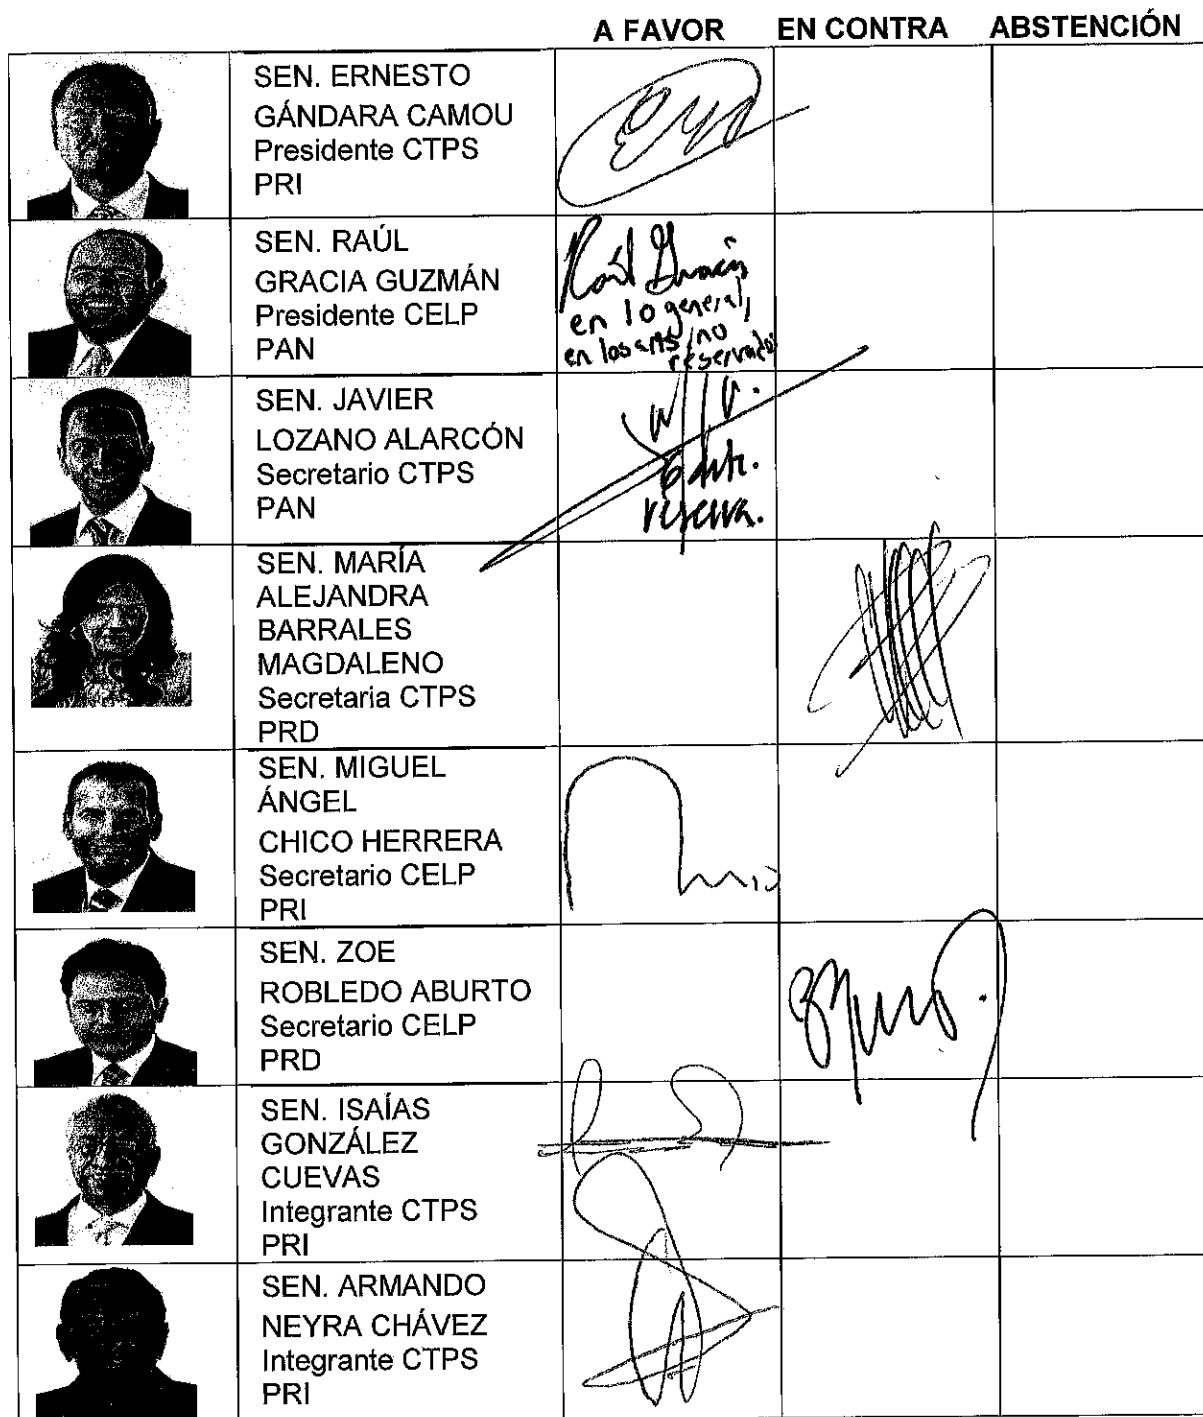 A FAVOR EN CONTRA ABSTENCIÓN
SEN. ERNESTO
GÁNDARA CAMOU
Presidente CTPS
PRI
SEN. RAÚL
GRACIA GUZMÁN
Presidente CELP
PAN
Raúl Gracia
en lo general,
en los arts no
reservados
SEN. JAVIER
LOZANO ALARCÓN
Secretario CTPS
PAN
reserva.
SEN. MARÍA
ALEJANDRA
BARRALES
MAGDALENO
Secretaria CTPS
PRD
SEN. MIGUEL
ÁNGEL
CHICO HERRERA
Secretario CELP
PRI
SEN. ZOE
ROBLEDO ABURTO
Secretario CELP
PRD
SEN. ISAÍAS
GONZÁLEZ
CUEVAS
Integrante CTPS
PRI
SEN. ARMANDO
NEYRA CHÁVEZ
Integrante CTPS
PRI